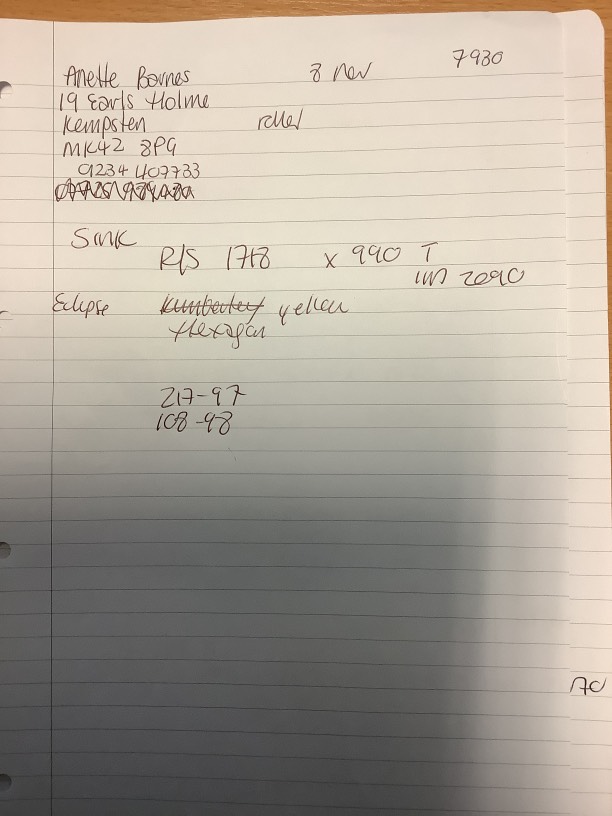 Anette Barnes 8 Nov 7980
19 Earls Holme
Kempsten roller
MK42 8PG
01234 407733
Sink
R/S 1718 x 990 T
Eclipse yellow
Hexagon
217-97
108-98